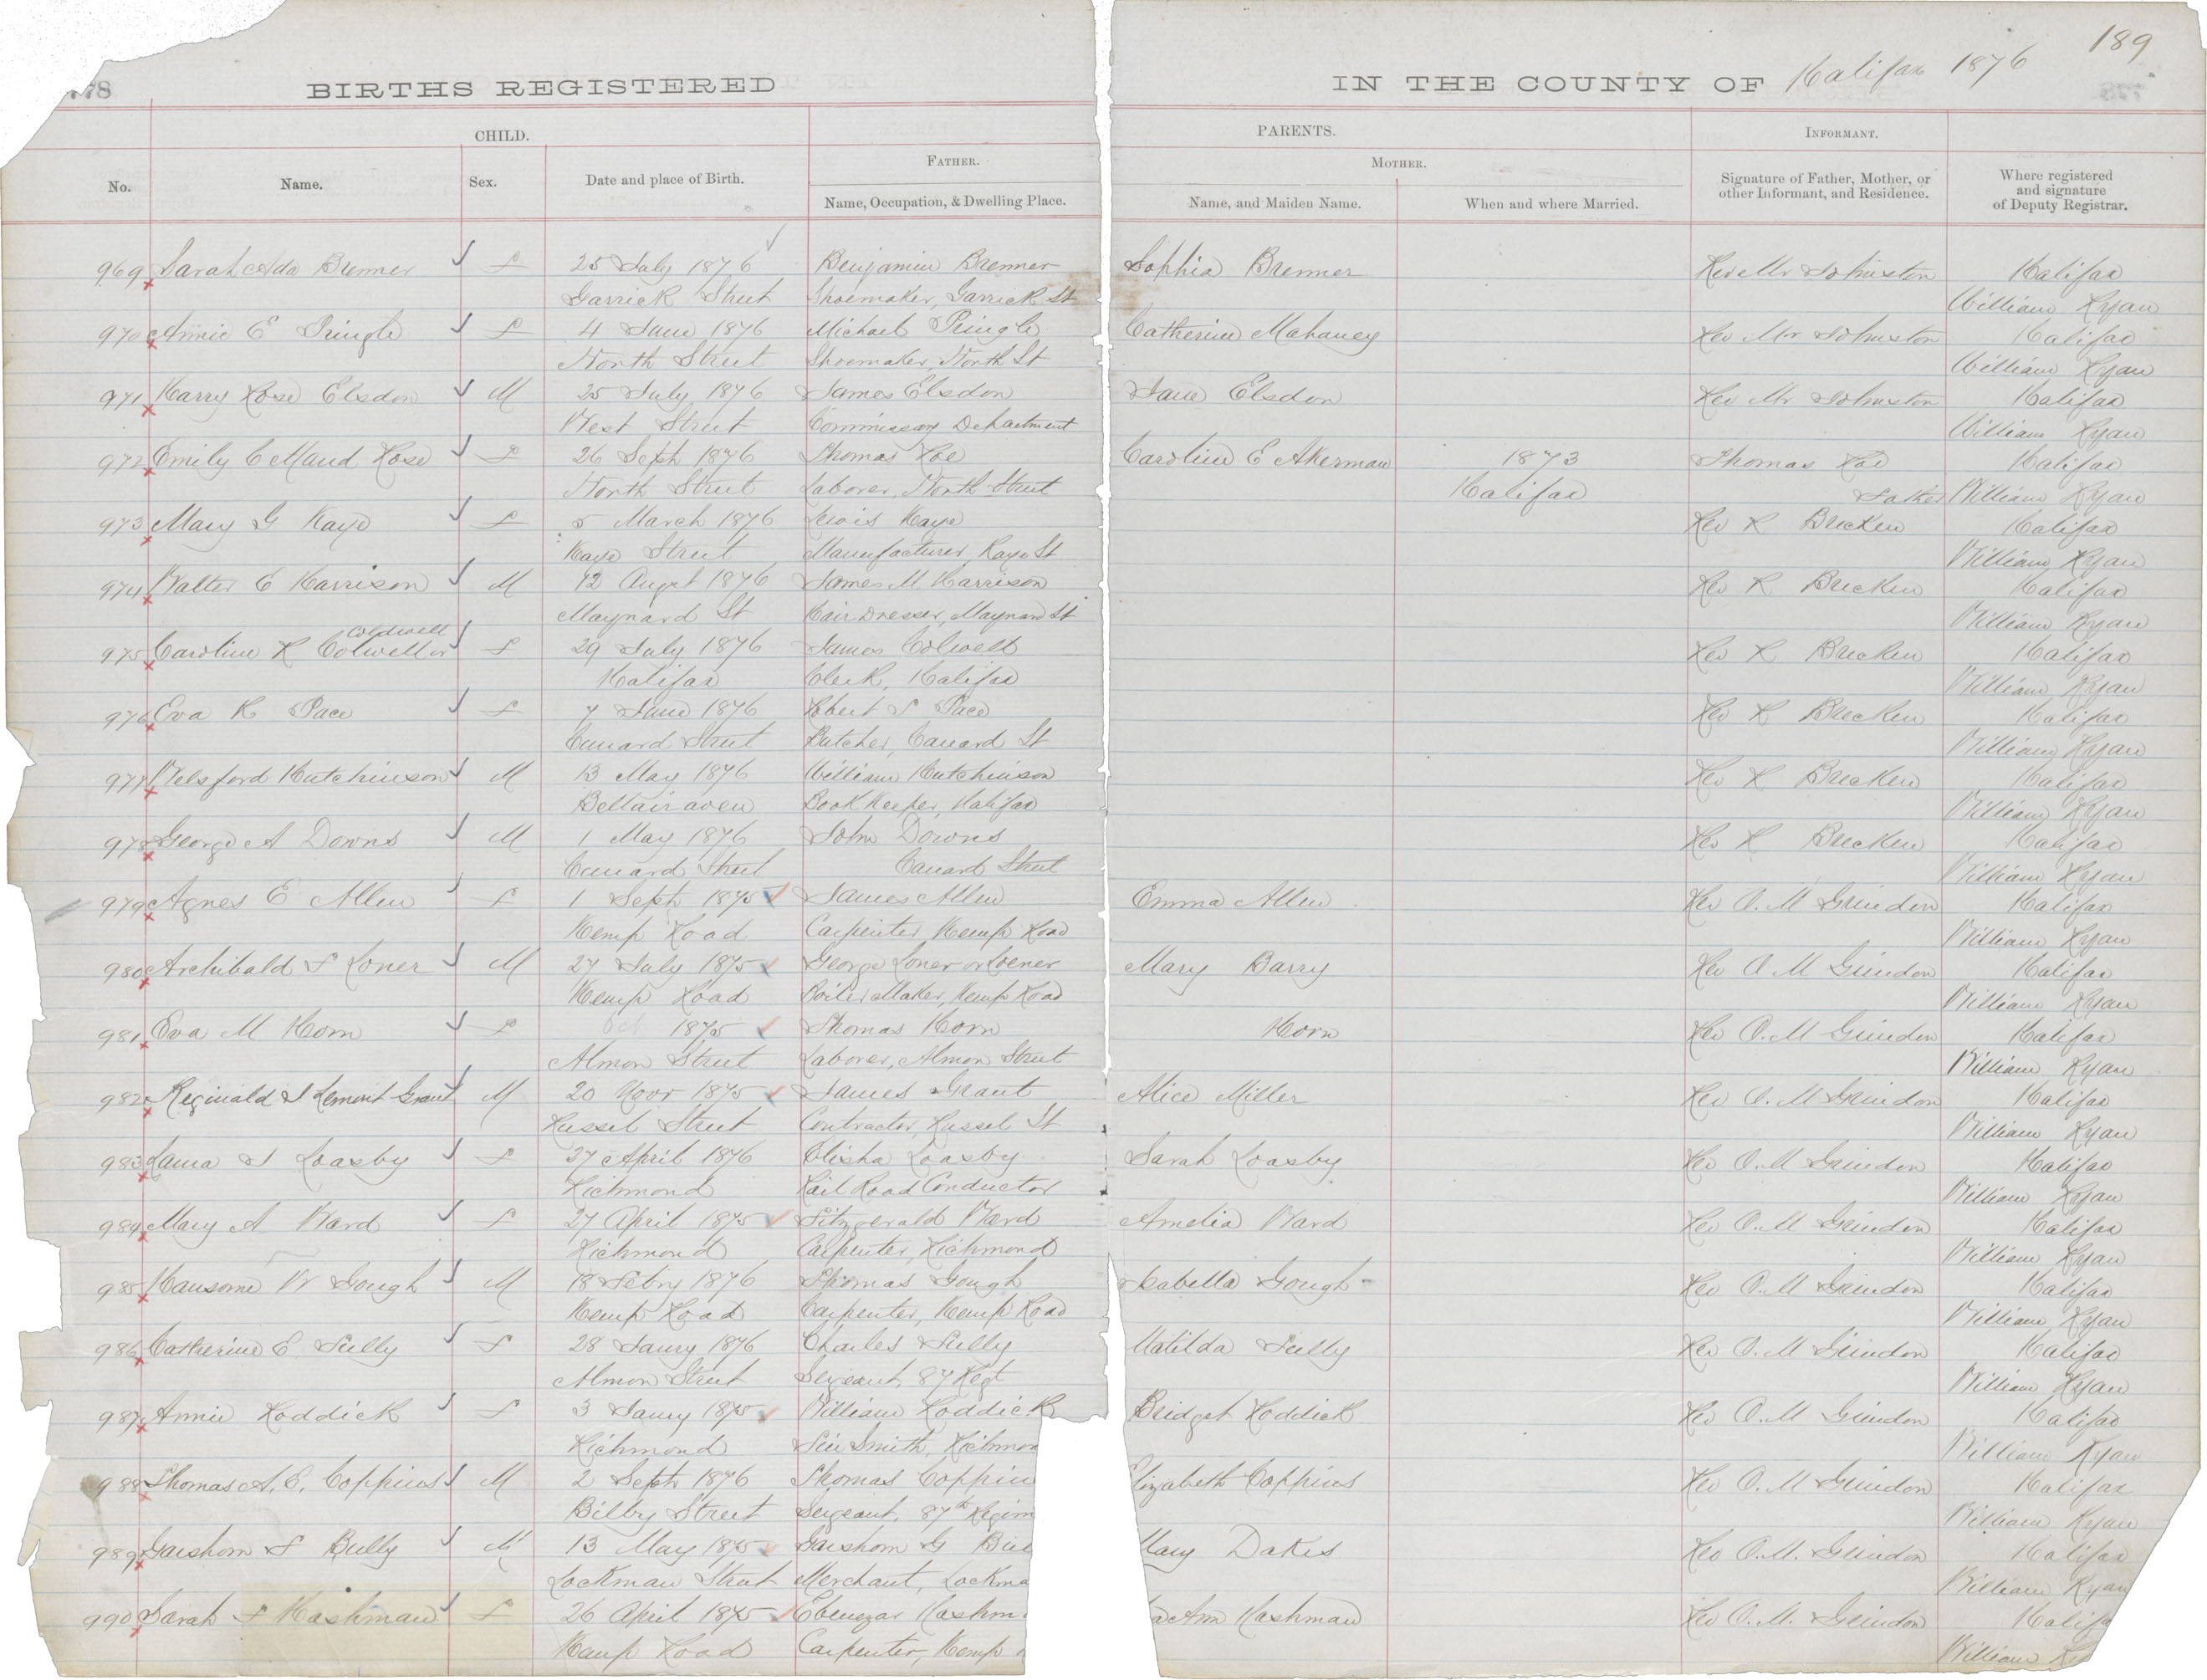 189
78 BIRTHS REGISTERED IN THE COUNTY OF Halifax 1876
CHILD. PARENTS. INFORMANT.
FATHER. MOTHER.
No. Name. Sex. Date and place of Birth. Name, Occupation, & Dwelling Place. Name, and Maiden Name. When and where Married. Signature of Father, Mother, or other Informant, and Residence. Where registered and signature of Deputy Registrar.
969 Sarah Ada Brenner f 25 July 1876 Benjamin Brenner Sophia Brenner Rev Mr Johnston Halifax
Garrick Street Shoemaker, Garrick St William Ryan
970 Annie E Pringle f 4 June 1876 Michael Pringle Catherine Mahaney Rev Mr Johnston Halifax
North Street Shoemaker, North St William Ryan
971 Harry Rose Elsdon M 25 July 1876 James Elsdon Jane Elsdon Rev Mr Johnston Halifax
West Street Commissary Department William Ryan
972 Emily C Maud Rose f 26 Sept 1876 Thomas Roe Caroline E Akerman 1873 Thomas Roe Halifax
North Street Laborer, North Street Halifax Father William Ryan
973 Mary G Kaye f 5 March 1876 Lewis Kaye Rev R Brecken Halifax
Kaye Street Manufacturer, Kaye St William Ryan
974 Walter E Harrison M 12 Augst 1876 James M Harrison Rev R Brecken Halifax
Maynard St Hair Dresser, Maynard St William Ryan
Coldwell
975 Caroline R Colwell or f 29 July 1876 James Colwell Rev R Brecken Halifax
Halifax Clerk, Halifax William Ryan
976 Eva R Pace f 7 June 1876 Robert S Pace Rev R Brecken Halifax
Cunard Street Butcher, Cunard St William Ryan
977 Welsford Hutchinson M 13 May 1876 William Hutchinson Rev R Brecken Halifax
Beltair aven Book Keeper, Halifax William Ryan
978 George A Downs M 1 May 1876 John Downs Rev R Brecken Halifax
Cunard Street Cunard Street William Ryan
979 Agnes E Allen f 1 Sept 1875 James Allen Emma Allen Rev O. M Grindon Halifax
Kemp Road Carpenter Kemp Road William Ryan
980 Archibald F Loner M 27 July 1875 George Loner or Loener Mary Barry Rev O M Grindon Halifax
Kemp Road Boiler Maker, Kemp Road William Ryan
981 Eva M Horn f Oct 1875 Thomas Horn Horn Rev O. M Grindon Halifax
Almon Street Laborer, Almon Street William Ryan
982 Reginald J Lemont Grant M 20 Novr 1875 James Grant Alice Miller Rev O. M Grindon Halifax
Russel Street Contractor, Russel St William Ryan
983 Laura J Loasby f 27 April 1876 Elisha Loasby Sarah Loasby Rev O. M Grindon Halifax
Richmond Rail Road Conductor William Ryan
984 Mary A Ward f 27 April 1875 Fitzgerald Ward Amelia Ward Rev O. M Grindon Halifax
Richmond Carpenter, Richmond William Ryan
985 Hansome W Gough M 18 Febry 1876 Thomas Gough Isabella Gough Rev O. M Grindon Halifax
Kemp Road Carpenter, Kemp Road William Ryan
986 Catherine E Sully f 28 Jany 1876 Charles Sully Matilda Sully Rev O. M Grindon Halifax
Almon Street Sergeant, 87 Regt William Ryan
987 Annie Roddick f 3 Jany 1875 William Roddick Bridget Roddick Rev O. M Grindon Halifax
Richmond Tin Smith, Richmon William Ryan
988 Thomas A. E. Coppins M 2 Sept 1876 Thomas Coppin Elizabeth Coppins Rev O. M Grindon Halifax
Bilby Street Sergeant, 87th Regim William Ryan
989 Gershom F Bully M 13 May 1875 Gershom G Bul Mary Dakis Rev O. M. Grindon Halifax
Lockman Street Merchant, Lockma William Ryan
990 Sarah F Hashman f 26 April 1875 Ebenezar Hashm Ann Hashman Rev O. M. Grindon Halifa
Kemp Road Carpenter, Kemp William